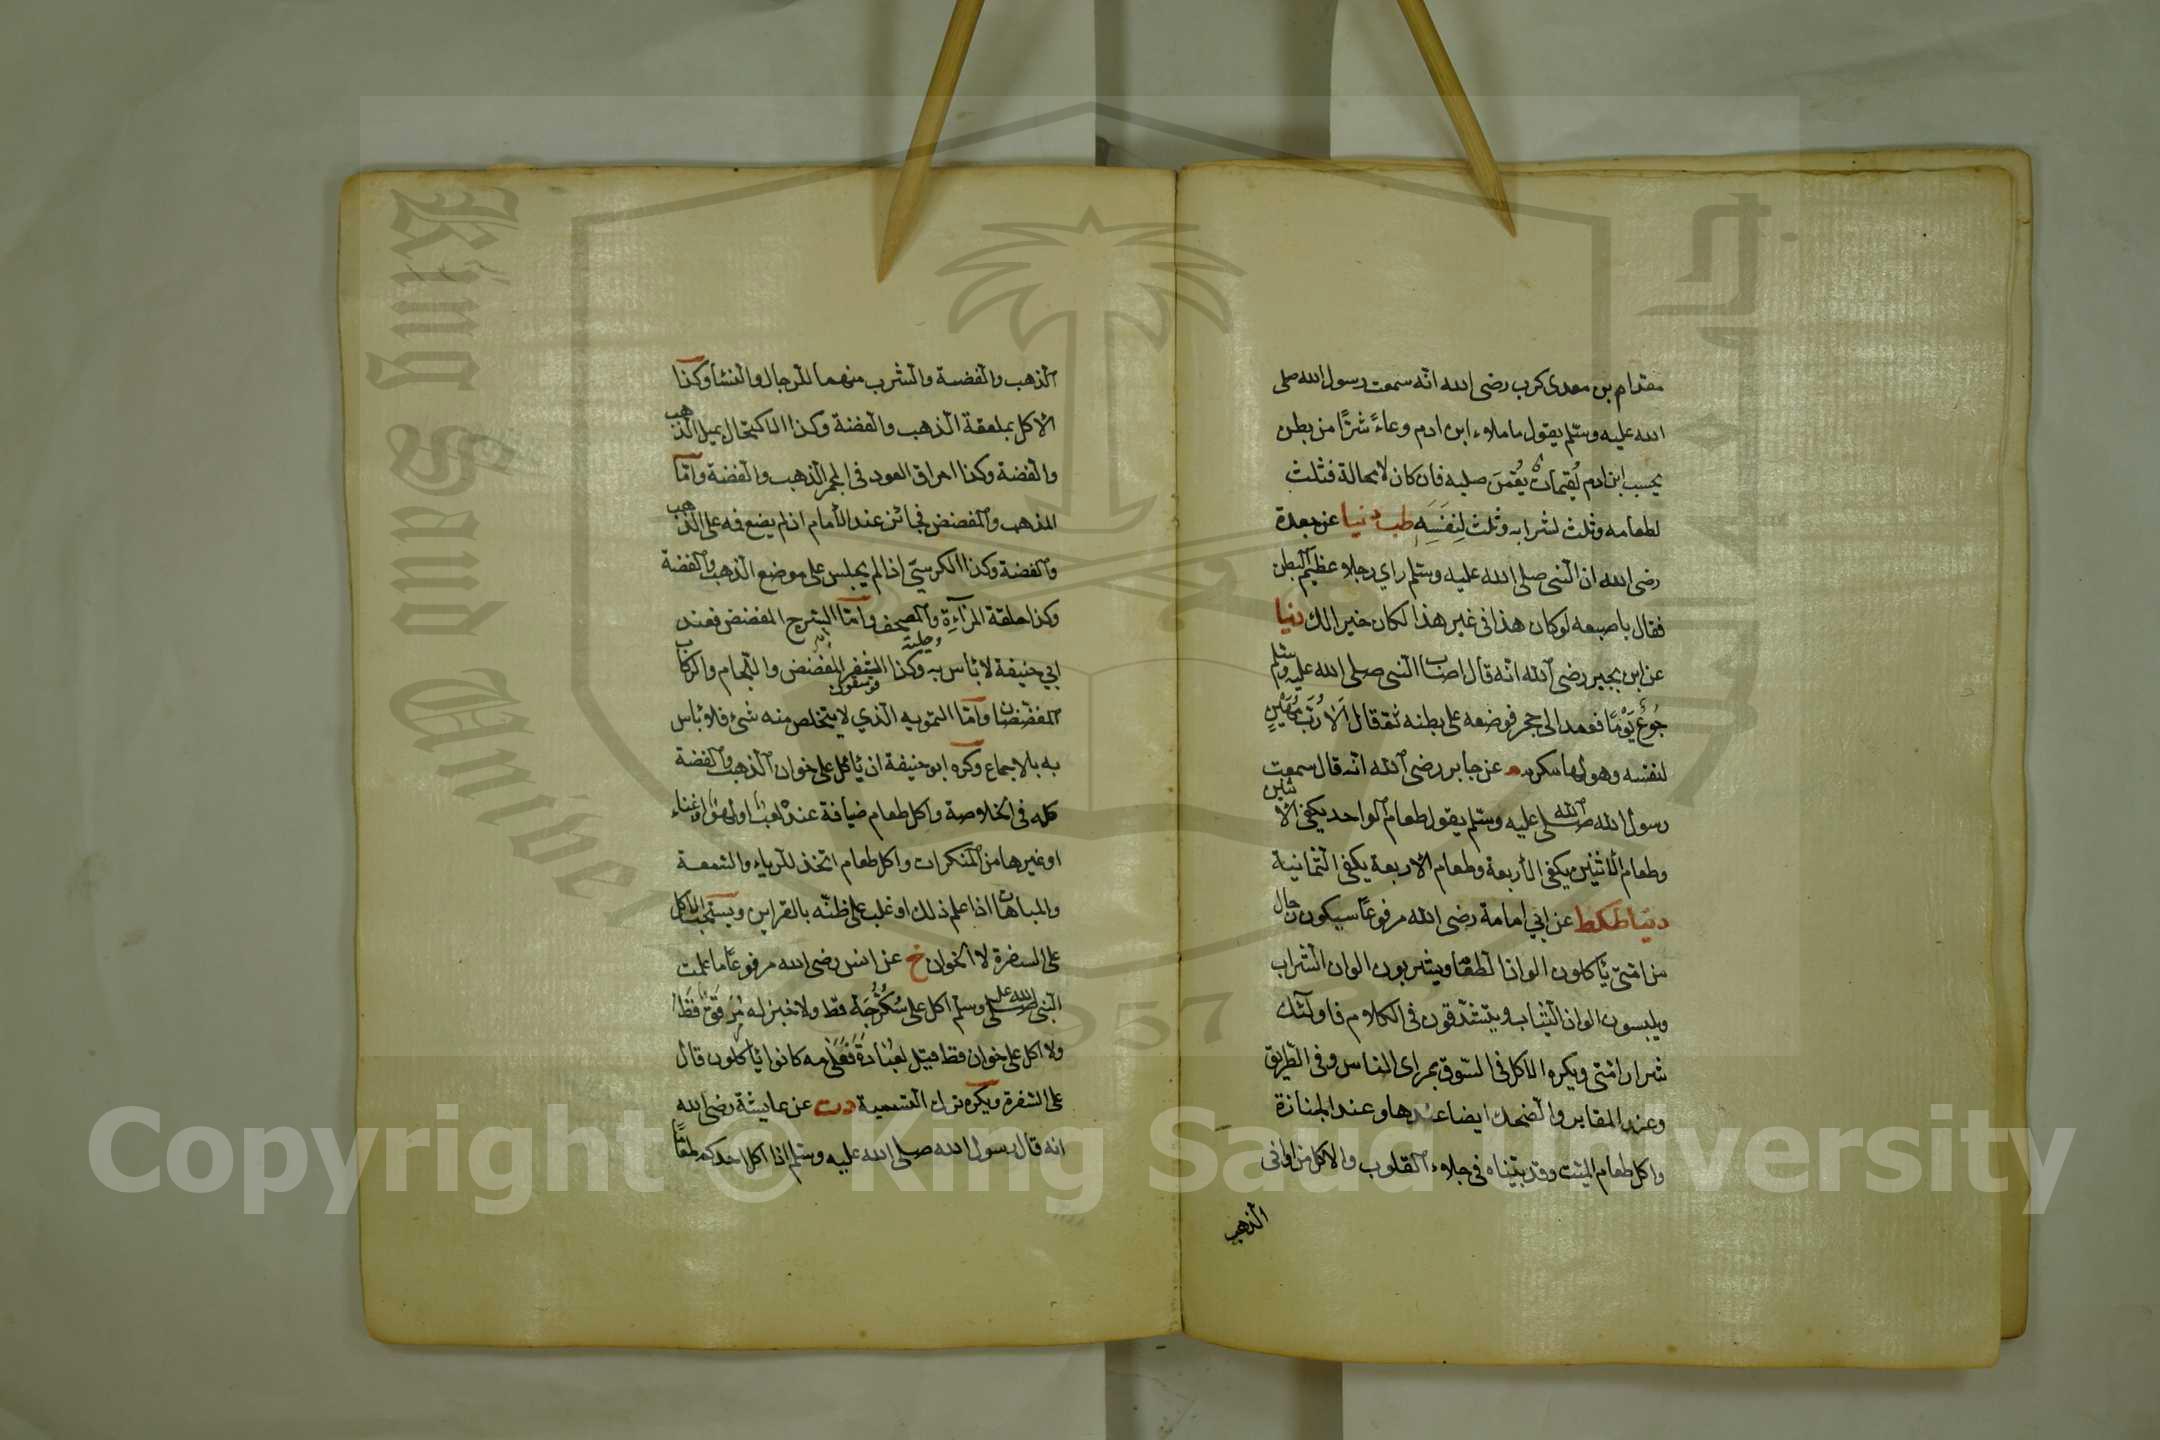 مقدام بن معدى كرب رضى الله انّه سمعت رسول الله صلى
الله عليه وسّلم يقول ما ملاء ابن ادم وعاءً شرًا من بطن
بحسب ابن ادم لُقيمات يُقِمْنَ صلبه فان كان لا محالة فثلث
لطعامه وثلث لشرابه وثلث لِنَفَسِهِ طب دنيا عن جعدة
رضى الله ان النّبى صلى الله عليه وسّلم راي رجلا عظيم البطن
فقال باصبعه لو كان هذا فى غير هذا لكان خيرا لك دنيا
عن ابن بجير رضى الله انه قال اصاب النّبى صلى الله عليه وسلم
جُوعٌ يَوْمًا فعمد الى حجر فوضعه على بطنه ثمّ قال اَلَا رُبّ مُهِينٍ
لنفسه وهو لها مكرم م عن جابر رضى الله انّه قال سمعت
رسول الله صلى الله عليه وسّلم يقول طعام الواحد يكفى الاثنين
وطعام الاثنين يكفى الأربعة وطعام الاربعة يكفى الثّمانية
دنيا طكط عن ابي امامة رضى الله مرفوعًا سيكون رجال
من امّتى يأكلون الوان الطّعام ويشربون الوان الشّراب
ويلبسون الوان الثّياب ويتشدّقون فى الكلام فاولٓئك
شرار امّتى ويكره الاكل فى السّوق بمراى النّاس وفى الطّريق
وعند المقابر والضّحك ايضا عندها وعند الجنازة
واكل طعام الميّت وقد بيّناه فى جلاء القلوب والاكل من اوانى
الذّهب
الذّهب والفضة والشّرب منهما للرّجال والنّسا وكذا
الاكل بملعقة الذّهب والفضّة وكذا الاكتحال بميل الذّهب
والفضّة وكذا احراق العود فى المجمر الذّهب والفضّة وامّا
المذهب والمفضض فجائز عند الأمام اذا لم يضع فمه على الذّهب
والفضّة وكذا الكرسيّ اذا لم يجلس على موضع الذّهب والفضّة
وكذا حلقة المرآءة والمصحف وامّا السّرج المفضض فعند
ابي حنيفة لا بأس به وكذا الثفر المفضض واللّجام والركاب
وحلية
المفضّضان وامّا التمويه الّذي لا يتخلص منه شىء فلا بأس
به بالاجماع وكره ابو حنيفة ان يأكل على خوان الذّهب والفضّة
كله فى الخلاصة واكل طعام ضيافة عنده لعب او لهو او غناء
او غيرها من المنكرات واكل طعام اتخذ للرّياء والسّمعة
والمباهات اذا علم ذلك او غلب على ظنّه بالقراين ويستحب الاكل
على السفرة لا الخوان خ عن انس رضى الله مرفوعًا ما علمت
النّبى صلى الله عليه وسلم اكل على سُكُرُّجَة قط ولا خبز له مُرَقّق قط
ولا اكل على خوان قط قيل لقتادة فعلى مه كانوا يأكلون قال
على السّفرة ويكره ترك التّسمية دت عن عايشة رضى الله
انه قال رسول الله صلى الله عليه وسّلم اذا اكل احدكم طعامًا
Copyright © King Saud University
King Saud University
1957